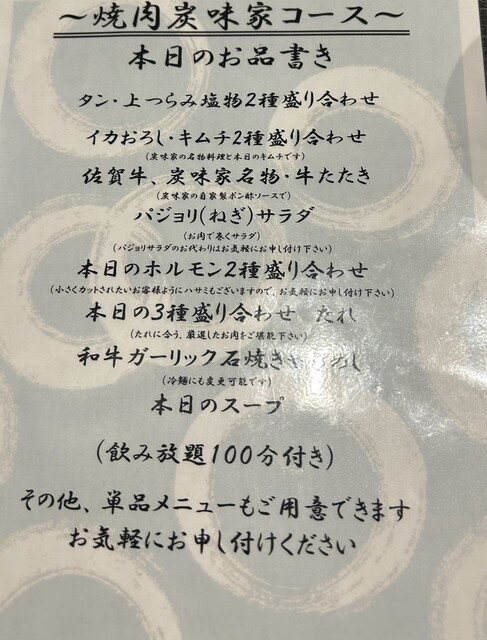 ～焼肉炭味家コース～
本日のお品書き
タン・上つらみ塩物2種盛り合わせ
イカおろし・キムチ2種盛り合わせ
(炭味家の名物料理と本日のキムチです)
佐賀牛、炭味家名物・牛たたき
(炭味家の自家製ポン酢ソースで)
パジョリ(ねぎ)サラダ
(お肉で巻くサラダ)
(パジョリサラダのお代わりはお気軽にお申し付け下さい)
本日のホルモン2種盛り合わせ
(小さくカットされたいお客様ようにハサミもございますので、お気軽にお申し付け下さい)
本日の3種盛り合わせ たれ
(たれに合う、厳選したお肉をご堪能下さい)
和牛ガーリック石焼き めし
(冷麺にも変更可能です)
本日のスープ
(飲み放題100分付き)
その他、単品メニューもご用意できます
お気軽にお申し付けください